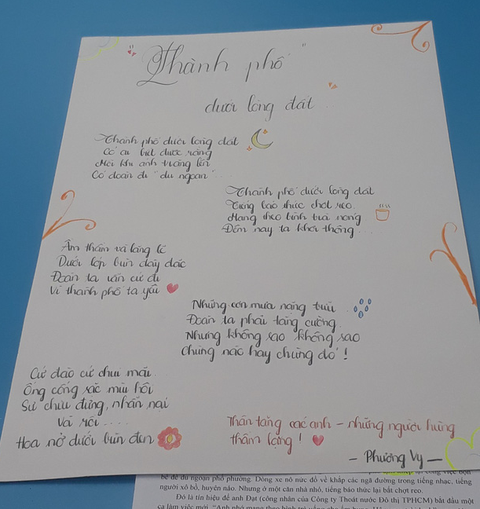 Thành phố
dưới lòng đất
Thành phố dưới lòng đất
Có ai biết được rằng
Mỗi khi ánh trăng lên
Có đoàn đi "du ngoạn"
Thành phố dưới lòng đất
Từng bao thức chót reo
Mang theo bình trà nóng
Đêm nay ta khơi thông
Âm thầm và lặng lẽ
Dưới lớp bùn dày đặc
Đoàn ta vẫn cứ đi
Vì thành phố ta yêu
Những cơn mưa nặng trĩu
Đoàn ta phải tăng cường
Nhưng không sao không sao
Chúng nào hay chúng đó!
Cứ đào cứ chui mãi
Ống cống sặc mùi hôi
Sự chịu đựng, nhẫn nại
Và rồi....
Hoa nở dưới bùn đen
Thân tặng các anh - những người hùng
thầm lặng!
- Phương Vy -
bè để du ngoạn phố phường. Dòng xe nô nức đổ về khắp các ngã đường trong tiếng nhạc, tiếng
người xô bồ, huyên náo. Nhưng ở một căn nhà nhỏ, tiếng báo thức lại bất chợt reo.
Đó là tín hiệu để anh Đạt (công nhân của Công ty Thoát nước Đô thị TPHCM) bắt đầu một